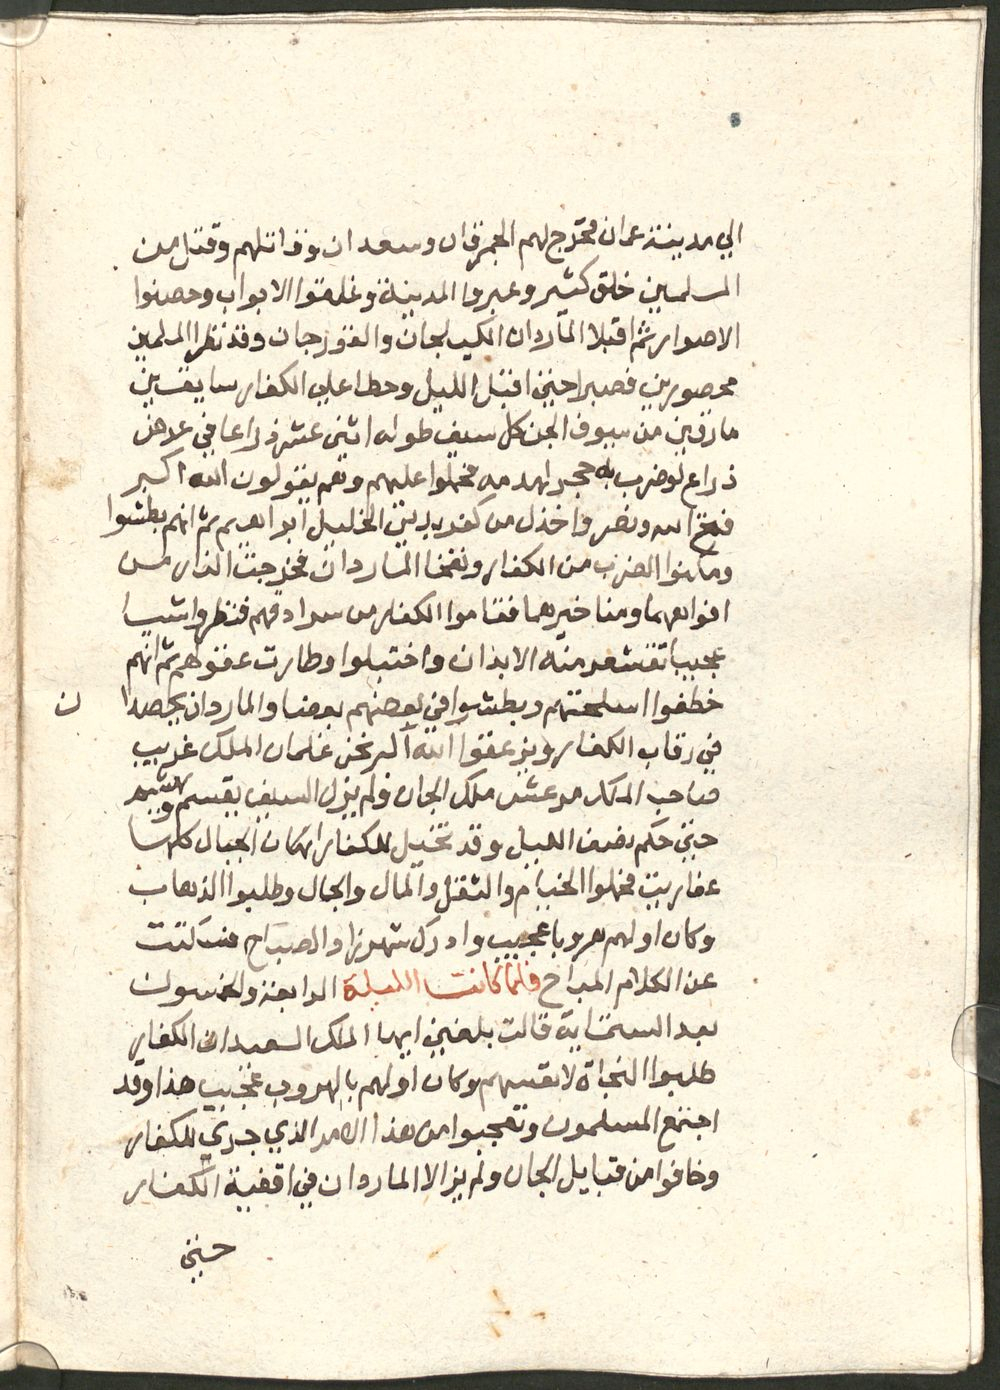 الي مدينة عمان فخرج لهم الجمرقان وسعدان وقاتلهم وقتل من
المسلمين خلق كثير وعبروا المدينة وغلقوا الابواب وحصنوا
الاصوار ثم اقبلا الماردان الكيلجان والقورجان وقد نظرا المسلمين
محصورين فصبرا حتي اقبل الليل وحطا علي الكفار سايفين
مارقين من سيوف الجن كل سيف طوله اثني عشر ذراعا في عرض
ذراع لو ضرب به حجر لهدمه فحملوا عليهم وهم يقولون الله اكبر
فتح الله ونصر واخذل من كفر بدين الخليل ابراهيم ثم انهم بطشوا
وما الضرب من الكفار ونفخا الماردان فخرجت النار من
افواههما ومناخيرهما فقاموا الكفار من سرادقهم فنظروا شيا
عجيبا تقشعر منه الابدان واختبلوا وطارت عقولهم ثم انهم
خطفوا اسلحتهم وبطشوا في بعضهم بعضا والماردان يحصدا ن
في رقاب الكفار ويزعقوا الله اكبر نحن غلمان الملك غريب
صاحب الملك مرعش ملك الجان ولم يزل السيف يقسم
حتي حكم نصف الليل وقد تخيل للكفار ان الجبال كلها
عفاريت فحملوا الخيام والثقل والمال والجمال وطلبوا الذهاب
وكان اولهم هروبا عجيب وادرك شهرزاد الصباح فسكتت
عن الكلام المباح فلما كانت الليلة الرابعة والخمسون
بعد الستماية قالت بلغني ايها الملك السعيد ان الكفار
طلبوا النجاة لانفسهم وكان اولهم بالهروب عجيب هذا وقد
اجتمع المسلمون وتعجبوا من هذا الامر الذي جري للكفار
وخافوا من قبايل الجان ولم يزالا الماردان في اقفية الكفار
حتي